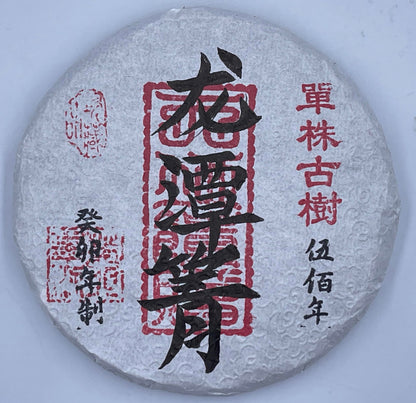 單株古樹
伍佰年
龙潭箐
癸卯年制